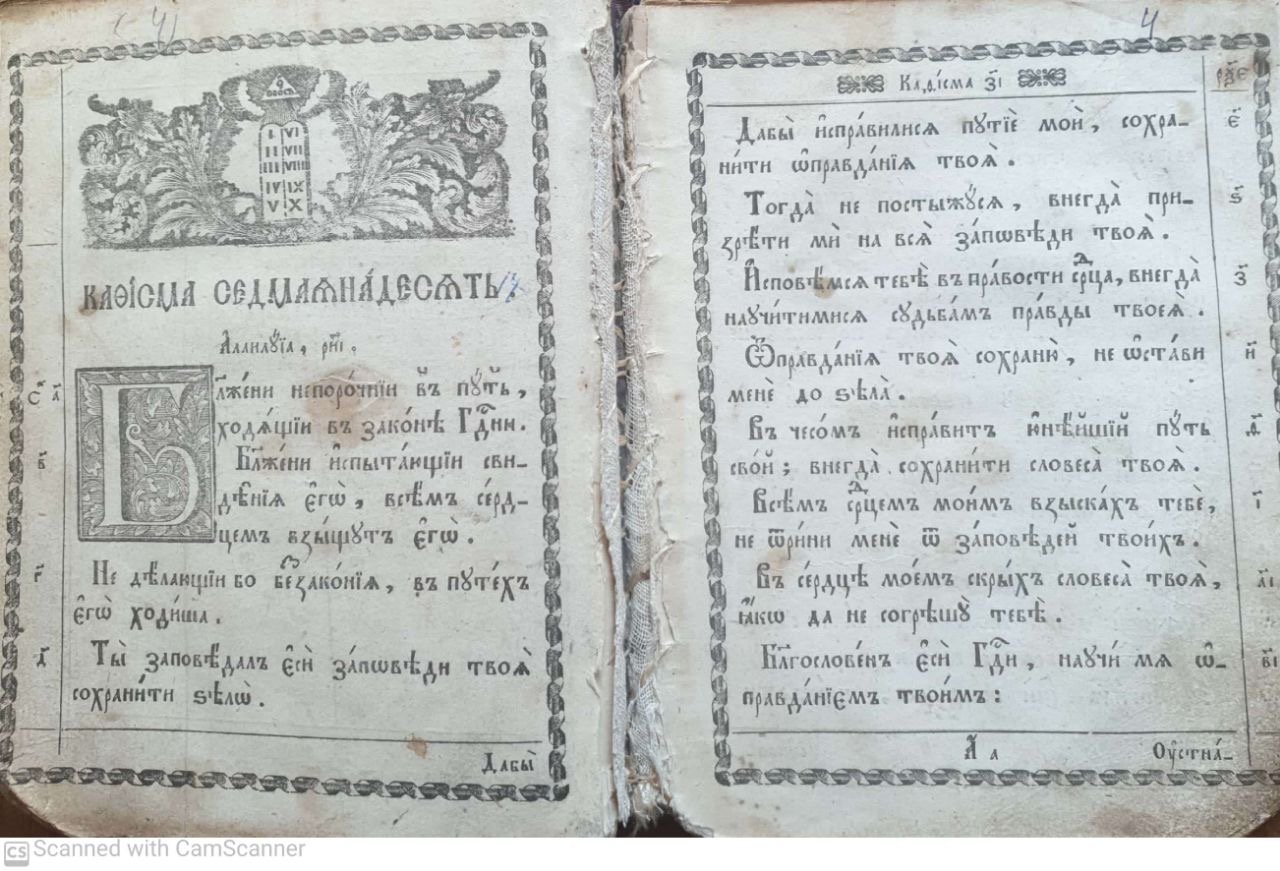 4
ѲЕОСЪ
I VI
II VII
III VIII
IV IX
V X
КАѲІ́СМА СЕДМАѦНА́ДЕСѦТЬ. 17
Аллилꙋ́їа, рн҃і.
Бл҃же́ни непоро́чнїи въ пꙋ́ть,
ходѧ́щїи въ зако́нѣ Гдⷭ҇ни.
а҃
Бл҃же́ни и҆спыта́ющїи сви-
в҃
дѣ́нїѧ є҆гѡ̀, всѣ́мъ се́рд-
цемъ взы́щꙋтъ є҆гѡ̀.
Не дѣ́лающїи бо беззако́нїѧ, въ пꙋте́хъ
г҃
є҆гѡ̀ ходи́ша.
Ты̀ заповѣ́далъ є҆сѝ за́пѡвѣди твоѧ̑
д҃
сохрани́ти ѕѣлѡ̀.
Дабы̀
4
Каѳі́сма з҃і
Дабы̀ и҆спра́вилисѧ пꙋтїѐ моѝ, сохра-
є҃
ни́ти ѡ҆правда̑нїѧ твоѧ̑.
Тогда̀ не постыжꙋ́сѧ, внегда̀ при-
ѕ҃
зрѣ́ти мѝ на всѧ̑ за́пѡвѣди твоѧ̑.
И҆сповѣ́мсѧ тебѣ̀ въ пра́вости срⷣца, внегда̀
з҃
наꙋчи́тимисѧ сꙋдьба́мъ пра́вды твоеѧ̀.
Ѡ҆правда̑нїѧ твоѧ̑ сохраню̀, не ѡ҆ста́ви
и҃
менѐ до ѕѣла̀.
Въ чесо́мъ и҆спра́витъ ю҆нѣ́йшїй пꙋ́ть
ѳ҃
сво́й; внегда̀ сохрани́ти словеса̀ твоѧ̑.
Всѣ́мъ срⷣцемъ мои́мъ взыска́хъ тебѐ,
і҃
не ѿри́ни менѐ ѿ за́повѣдей твои́хъ.
Въ се́рдцѣ мое́мъ скры́хъ словеса̀ твоѧ̑,
а҃і
ꙗ҆́кѡ да не согрѣшꙋ̀ тебѣ̀.
Блг҃ослове́нъ є҆сѝ Гдⷭ҇и, наꙋчи́ мѧ ѡ҆-
в҃і
правда́нїємъ твои̑мъ:
А҃ а
Оу҆стна́-
Scanned with CamScanner